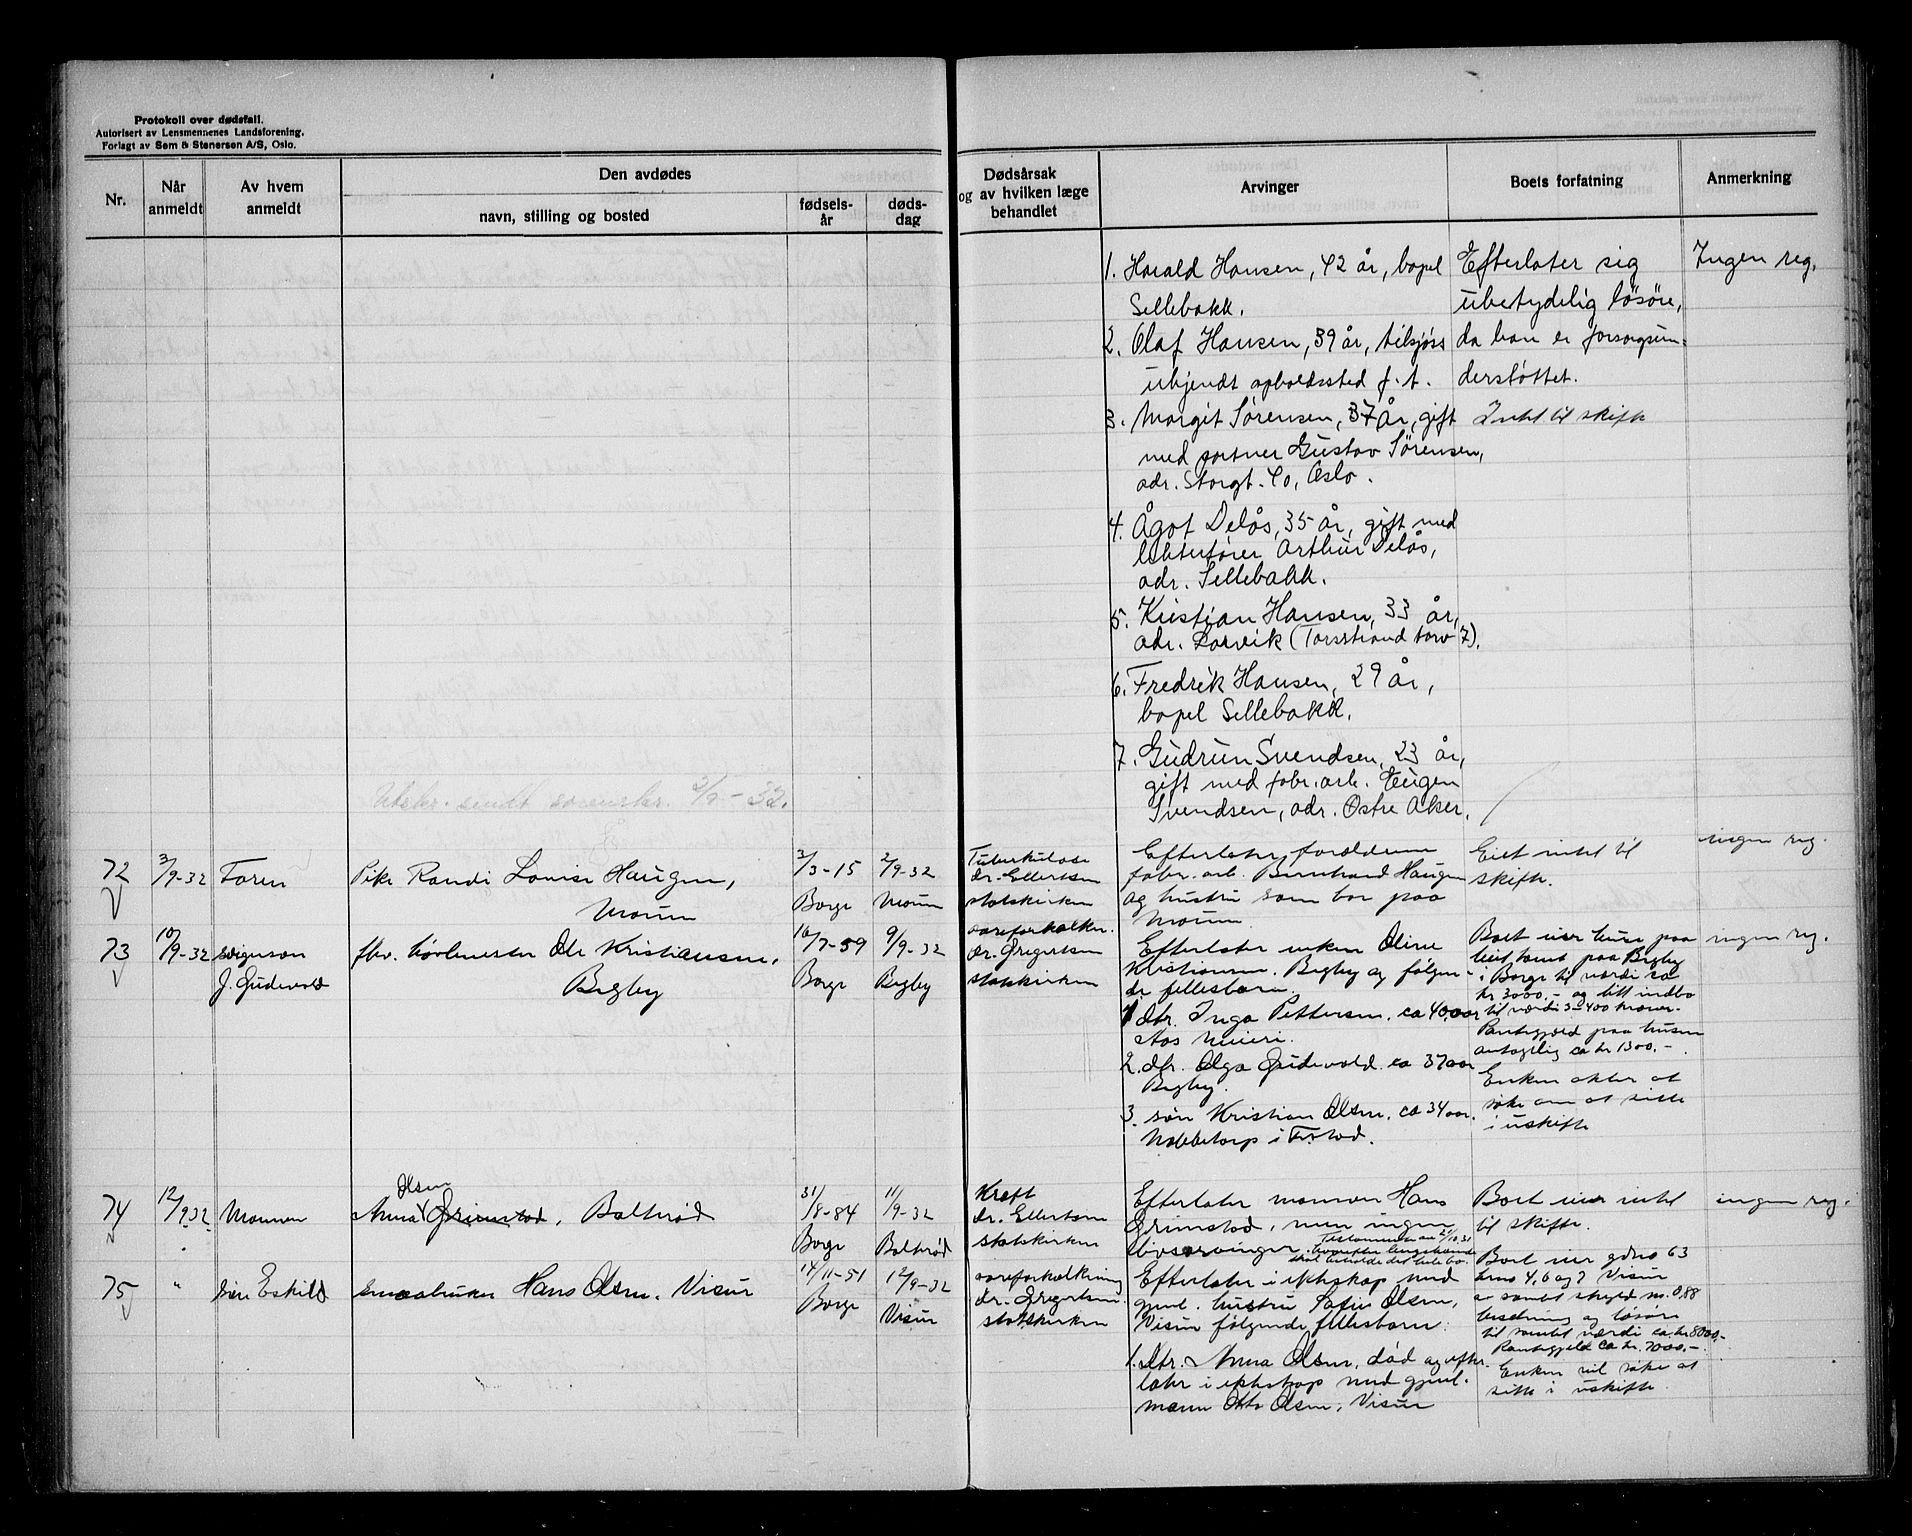 Protokoll over dødsfall.
Autorisert av Lensmennenes Landsforening.
Forlagt av Sem & Stenersen A/S, Oslo.
Nr.
Når anmeldt
Av hvem anmeldt
Den avdødes
navn, stilling og bosted
fødsels-år
døds-dag
Dødsårsak
og av hvilken læge
behandlet
Arvinger
Boets forfatning
Anmerkning
1. Harald Hansen, 42 år, bopel
Sellebakk.
2. Olaf Hansen, 39 år, tilsjøss
ukjendt opholdssted f.t.
3. Margit Sørensen, 37 år, gift
med portner Gustav Sørensen,
adr. Storgt. 40, Oslo.
4. Ågot Delås, 35 år, gift med
lekterfører Arthur Delås,
adr. Sellebakk.
5. Kristian Hansen, 33 år,
adr. Larvik (Torsstrand torv 7).
6. Fredrik Hansen, 29 år,
bopel Sellebakk.
7. Gudrun Svendsen, 23 år,
gift med fabr. arb. Eugen
Svendsen, adr. Østre Aker.
Efterlater sig
ubetydelig løsøre,
da han er forsorgsun-
derstøttet.
Intet til skifte
Ingen reg.
Utskr. sendt sorenskr. 2/9-32.
72
3/9-32
Faren
Pike Randi Lovise Haugen,
Moum
3/3-15
Borge
2/9-32
Moum
Tuberkulose
dr. Ellertsen
statskirken
Efterlater foreldrene
fabr. arb. Bernhard Haugen
og hustru som bor paa
Moum
Eiet intet til
skifte.
ingen reg.
73
10/9-32
svigersøn
J. Gudevold
fhv. Ole Kristiansen,
Begby
16/7-59
Borge
9/9-32
Begby
aareforkalkn.
dr. Gregertsen
statskirken
Efterlater enken Oline
Kristiansen, Begby og følgen-
de fellesbarn.
1. dtr. Inga Pettersen, ca 40 aar
Aas meieri.
2. dtr. Olga Gudevold ca 37 aar
Begby.
3. søn Kristian Olsen, ca 34 aar.
Nabbetorp i F.stad.
Boet eier huse paa
leiet tomt paa Begby
i Borge til værdi ca
kr 3000.- og litt indbo
til værdi 3-400 kroner.
Pantegjeld paa husene
antagelig ca kr 1300.-
Enken akter at
søke om at sitte
i uskifte
ingen reg.
74
12/9-32
Mannen
Olsen
Anna Grimstad, Baltrød
31/8-84
Borge
11/9-32
Baltrød
Kreft
dr. Ellertsen
statskirken
Efterlater mannen Hans
Grimstad, men ingen
livsarvinger. Testamente av 21/10.31
hvorefter lengstlevende
skal beholde det hele bo.
Boet eier intet
til skifte.
ingen reg.
75
"
Eskild
smaabruker Hans Olsen, Visur
14/11-51
Borge
12/9-32
Visur
aareforkalkning
dr. Gregertsen
statskirken
Efterlater i ekteskap med
gjenl. hustru Sofie Olsen,
Visur følgende fellesbarn:
1. dtr. Anna Olsen, død og efter-
later i ekteskap med gjenl.
mann Otto Olsen, Visur
Boet eier gdno 63
brno 4, 6 og 7 Visur
av samlet skyld m. 0,88
besetning og løsøre
til samlet værdi ca. kr. 8000.-
Pantegjeld ca kr. 7000.-
Enken vil søke at
sitte i uskifte